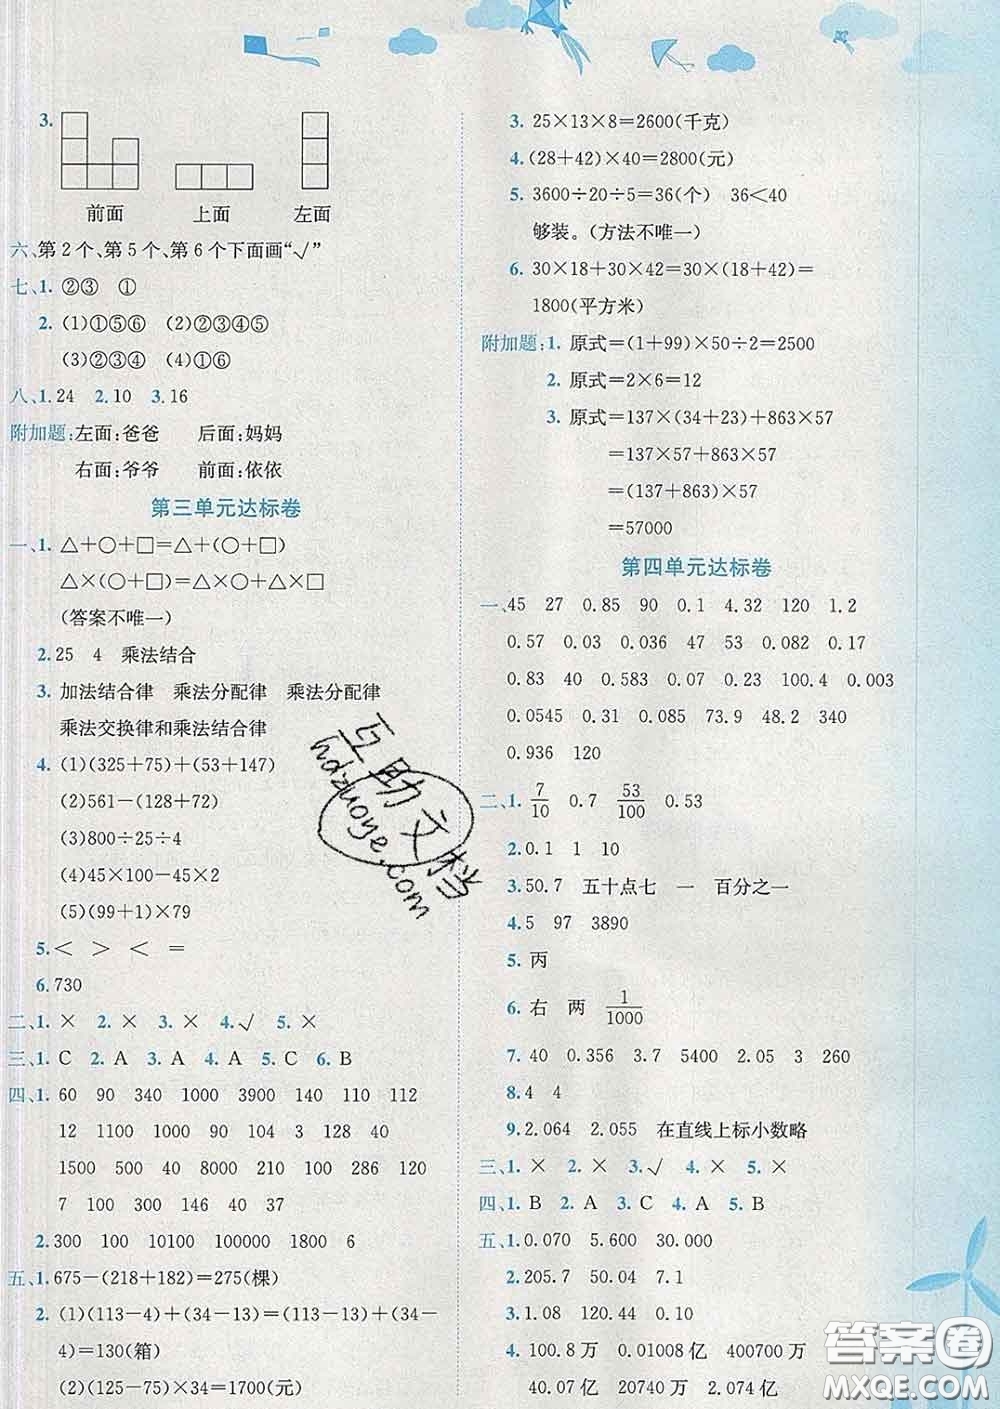 3.
前面 上面 左面
六、第2个、第5个、第6个下面画“√”
七、1. ②③ ①
2. (1)①⑤⑥ (2)②③④⑤
(3)②③④ (4)①⑥
八、1. 24 2. 10 3. 16
附加题:左面:爸爸 后面:妈妈
右面:爷爷 前面:依依
第三单元达标卷
一、1. △+○+□=△+(○+□)
△×(○+□)=△×○+△×□
(答案不唯一)
2. 25 4 乘法结合
3. 加法结合律 乘法分配律 乘法分配律
乘法交换律和乘法结合律
4. (1)(325+75)+(53+147)
(2)561-(128+72)
(3)800÷25÷4
(4)45×100-45×2
(5)(99+1)×79
5. < > < =
6. 730
二、1. × 2. × 3. × 4. √ 5. ×
三、1. C 2. A 3. A 4. A 5. C 6. B
四、1. 60 90 340 1000 3900 140 110 112
12 1100 1000 92 264 3 128 40
1500 500 460 200 100 286 120
7 100 234 146 40 37
2. 300 100 10100 100000 1800 6
五、1. 675-(218+182)=275(棵)
2. (1)(113-4)+(34-13)=(113-13)+(34-
4)=130(箱)
(2)(125-75)×34=1700(元)
3. 25×13×8=2600(千克)
4. (28+42)×40=2800(元)
5. 3600÷20÷5=36(个) 36<40
够装。(方法不唯一)
6. 30×18+30×42=30×(18+42)=
1800(平方米)
附加题:1. 原式=(1+99)×50÷2=2500
2. 原式=2×6=12
3. 原式=137×(34+23)+863×57
=137×57+863×57
=(137+863)×57
=57000
第四单元达标卷
一、45 27 0.85 90 0.1 4.32 120 1.2
0.57 0.03 0.036 47 53 0.082 0.17
0.83 40 0.583 0.07 230 100.4 0.003
0.0545 0.31 0.085 73.9 48.2 340
0.936 120
二、1. 7/10 0.7 53/100 0.53
2. 0.1 1 10
3. 50.7 五十点七 一 百分之一
4. 5 97 3890
5. 丙
6. 右 两 1/1000
7. 40 0.356 3.7 5400 2.05 3 260
8. 4 4
9. 2.064 2.055 在直线上标小数略
三、1. × 2. × 3. √ 4. × 5. ×
四、1. B 2. A 3. C 4. A 5. B
五、1. 0.070 5.600 30.000
2. 205.7 50.4 7.1
3. 1.08 120.44 0.10
4. 100.8万 0.01008亿 400700万
40.07亿 20740万 2.074亿
互助文档
hdzuoye.com
答案圈
MXQE.COM